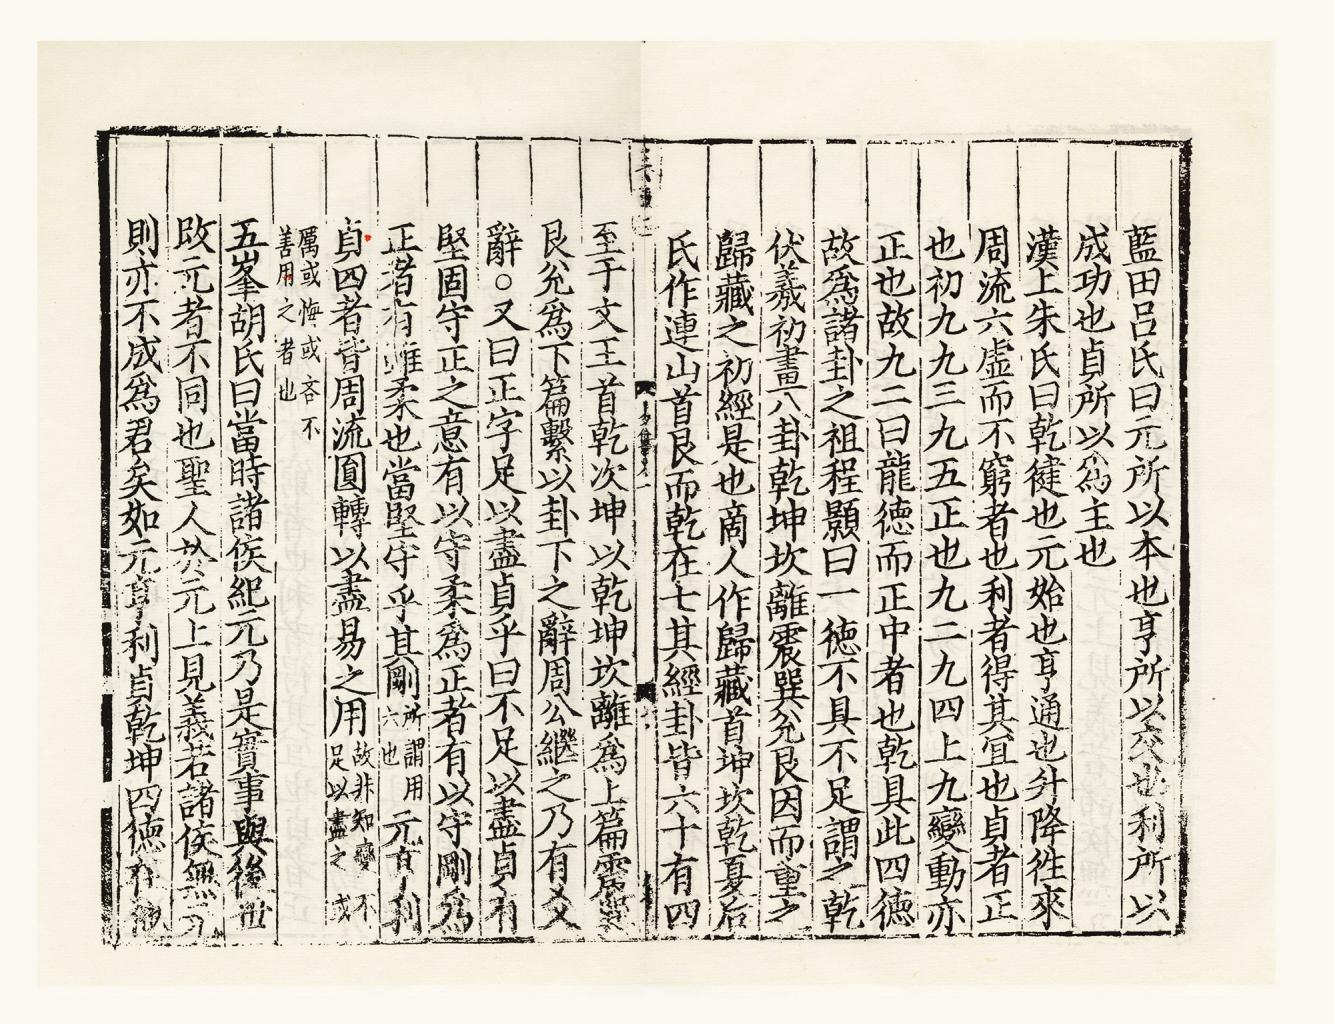 藍田呂氏曰元所以本也亨所以交也利所以
成功也貞所以為主也
漢上朱氏曰乾健也元始也亨通也升降徃來
周流六虛而不窮者也利者得其宜也貞者正
也初九九三九五正也九二九四上九變動亦
正也故九二曰龍德而正中者也乾具此四德
故爲諸卦之祖程顥曰一德不具不足謂之乾
伏羲初畫八卦乾坤坎離震巽兊艮因而重之
歸藏之初經是也商人作歸藏首坤坎乾夏后
氏作連山首艮而乾在七其經卦皆六十有四
至于文王首乾次坤以乾坤坎離爲上篇震巽
艮兊爲下篇繫以卦下之辭周公繼之乃有爻
辭○又曰正字足以盡貞乎曰不足以盡貞有
堅固守正之意有以守柔爲正者有以守剛爲
正者有雖柔也當堅守乎其剛所謂用六也元亨利
貞四者皆周流圓轉以盡易之用故非知變不足以盡之或
厲或悔或吝不善用之者也
五峯胡氏曰當時諸侯紀元乃是實事與後世
改元者不同也聖人於元上見義若諸侯無元
則亦不成爲君矣如元亨利貞乾坤四德有